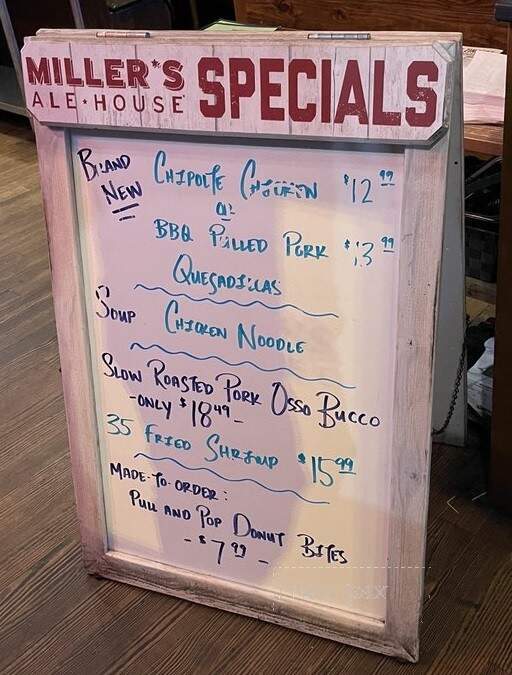 MILLER'S
ALE★HOUSE
SPECIALS
BRAND NEW
CHIPOLTE CHICKEN $12.99
OR
BBQ PULLED PORK $13.99
QUESADILLAS
SOUP CHICKEN NOODLE
SLOW ROASTED PORK OSSO BUCCO
-ONLY $18.49-
35 FRIED SHRIMP $15.99
MADE-TO-ORDER:
PULL AND POP DONUT BITES
-$7.99-